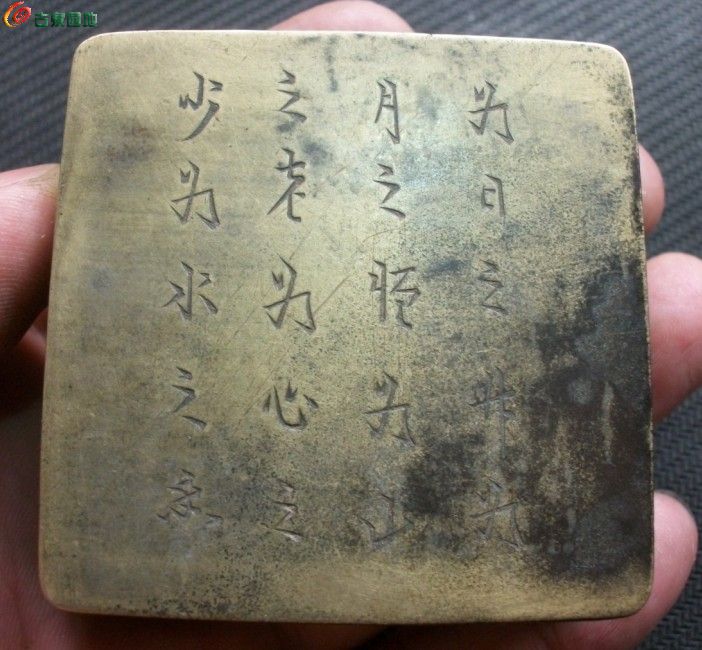 古泉园地
为日之升为
月之恒为山
之老为心之
少为水之